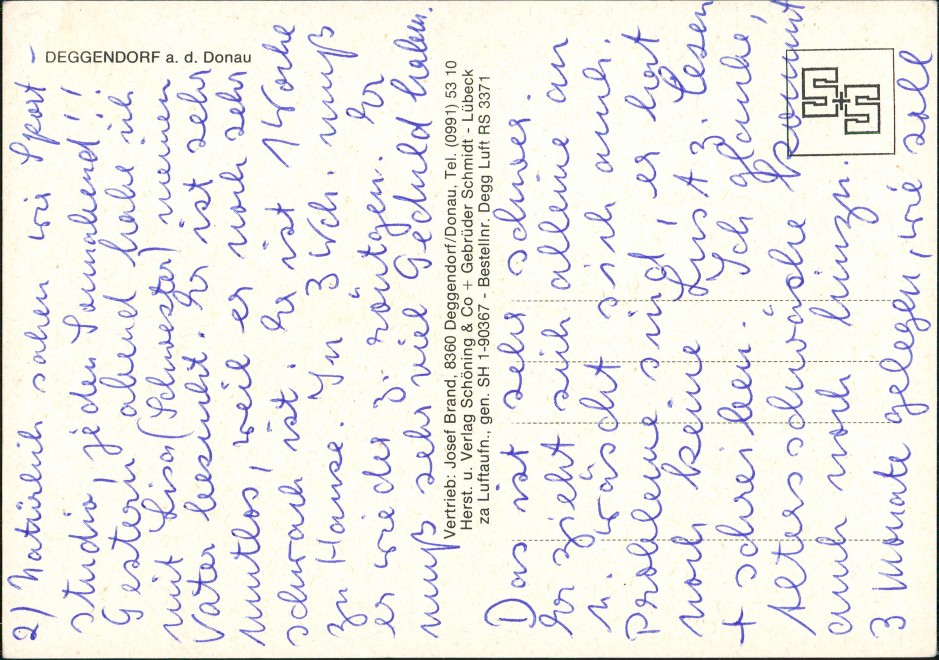 DEGGENDORF a. d. Donau
2) Natürlich sahen wir Sport-
studio, je den Sonnabend!!
Gestern abend habe ich
mit Lisa (Schwester) meinen
Vater besucht. Er ist sehr
mutlos, weil er noch sehr
schwach ist. Er ist 1 Woche
zu Hause. In 3 Wch. muß
er wieder z. röntgen. Er
muß sehr viel Geduld haben.
Vertrieb: Josef Brand, 8360 Deggendorf/Donau, Tel. (0991) 53 10
Herst. u. Verlag Schöning & Co + Gebrüder Schmidt - Lübeck
za Luftaufn., gen. SH 1-90367 - Bestellnr. Degg Luft RS 3371
Das ist sehr schwer.
Er zieht sich alleine an
u. wäscht sich auch.
Probleme sind, er hat
noch keine Lust z. Lesen
+ schreiben. Ich glaube,
Altersschwäche kommt
auch noch hinzu.
3 Monate gelegen, wie soll